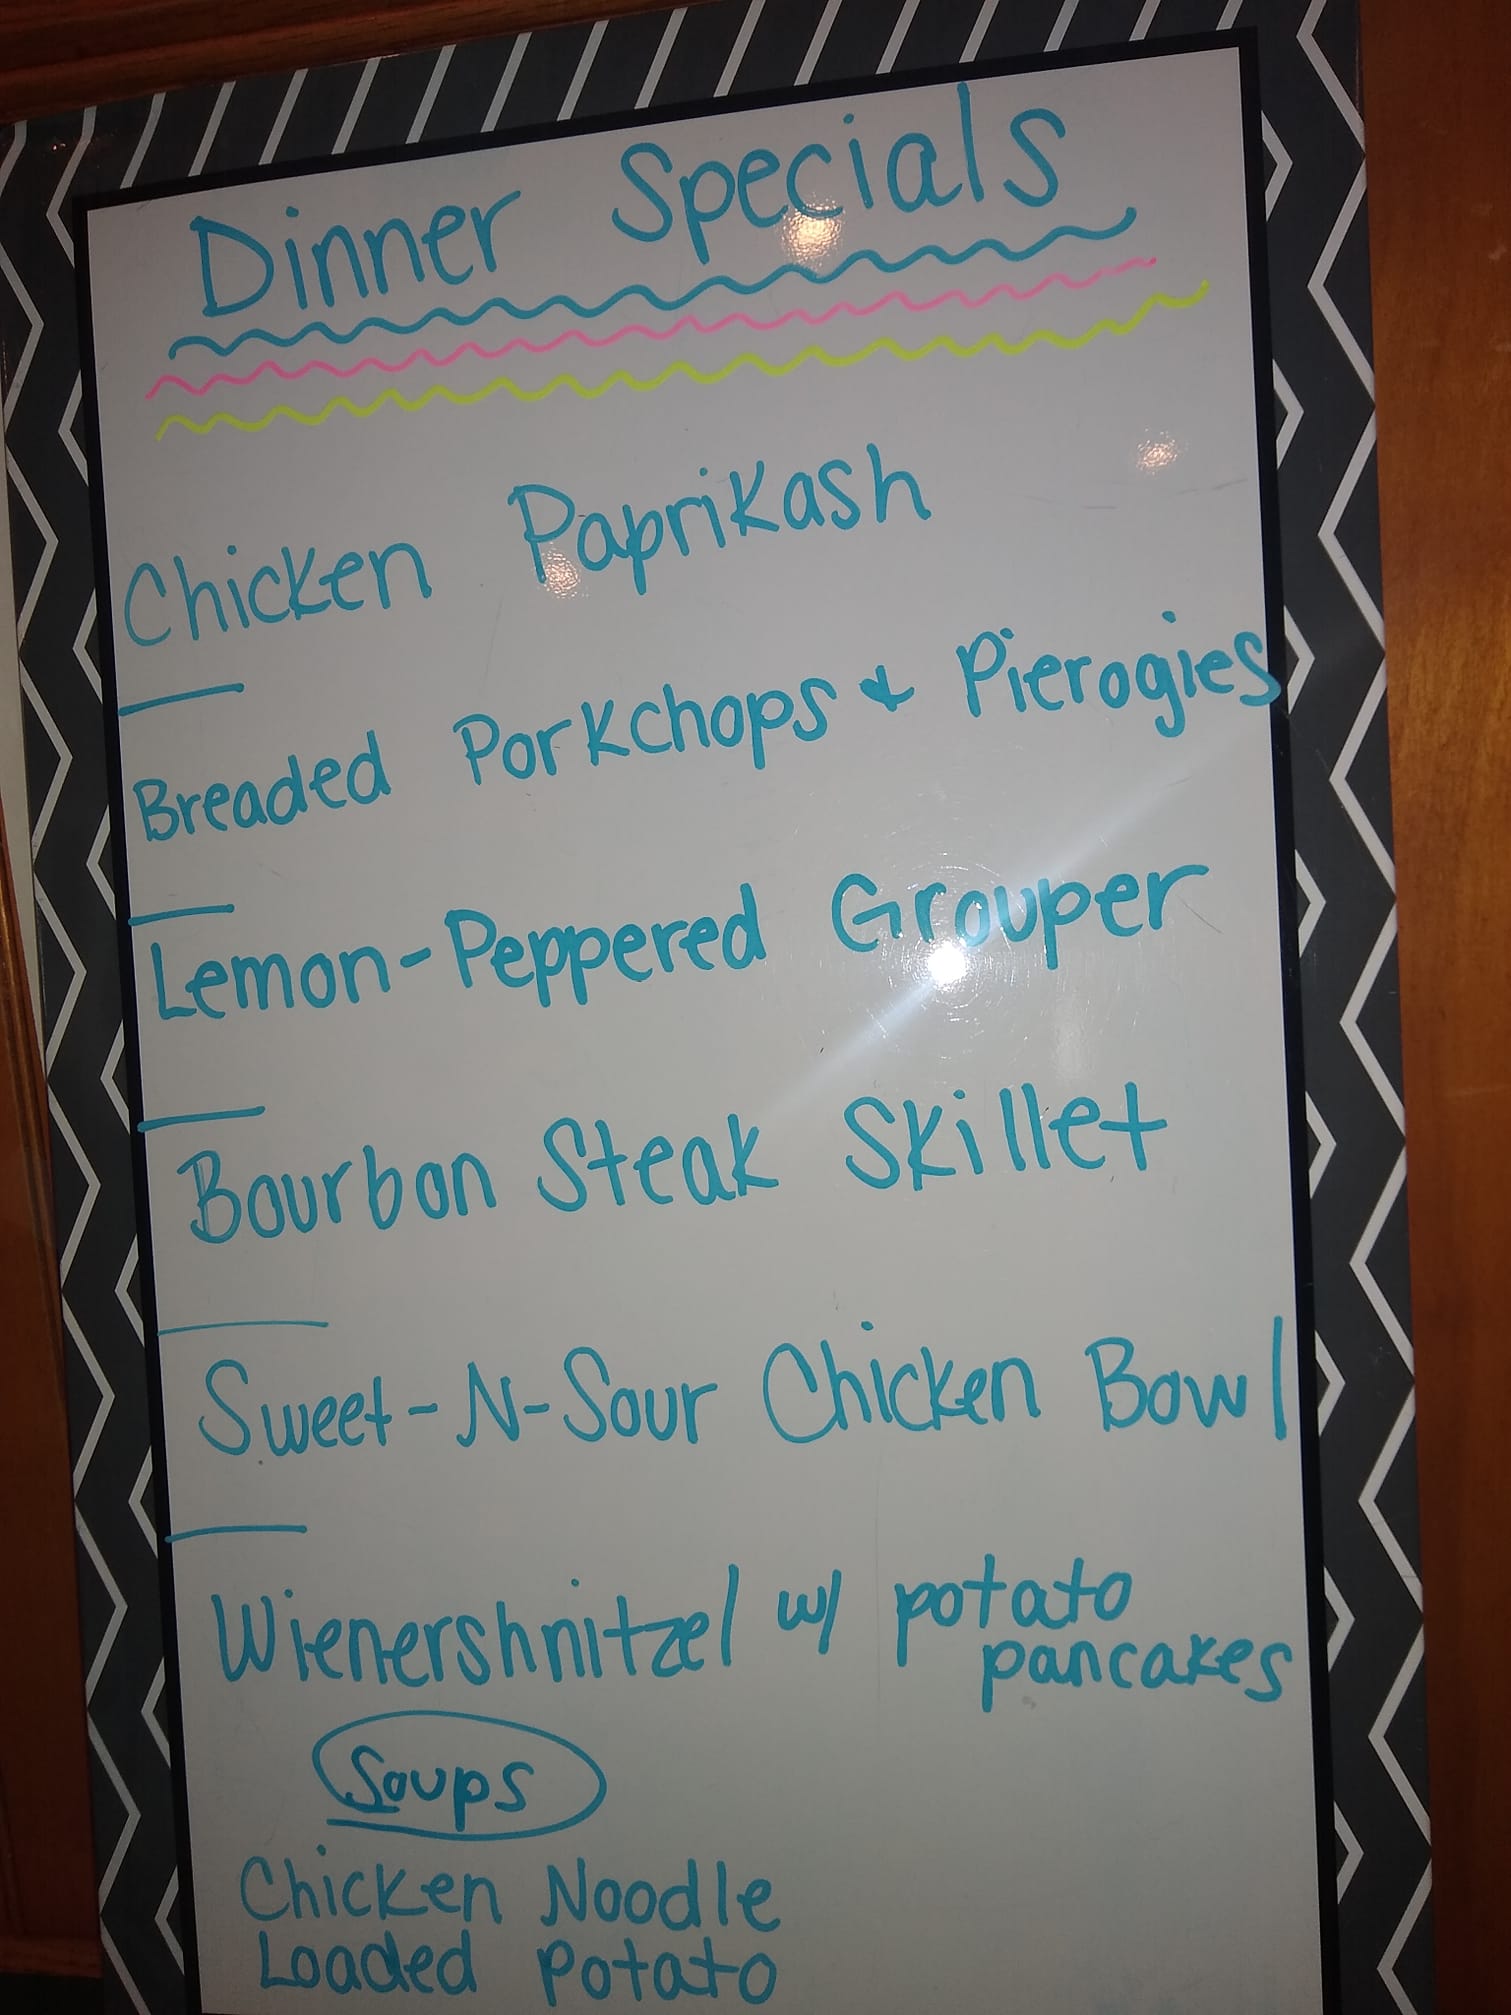 Dinner Specials
Chicken Paprikash
Breaded Porkchops & Pierogies
Lemon-Peppered Grouper
Bourbon Steak Skillet
Sweet-N-Sour Chicken Bowl
Wienershnitzel w/ potato
pancakes
Soups
Chicken Noodle
Loaded Potato